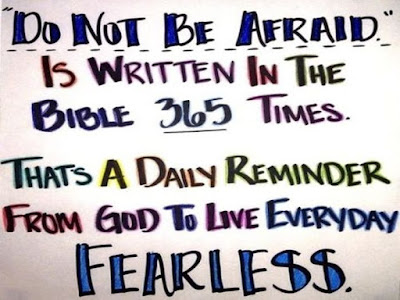 "Do Not Be Afraid."
Is Written In The
Bible 365 Times.
Thats A Daily Reminder
From God To Live Everyday
Fearless.